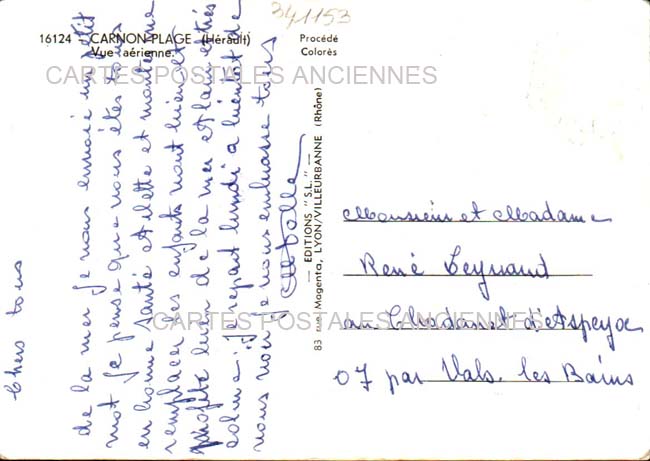 341153
16124 - CARNON-PLAGE (Hérault)
Vue aérienne.
Procédé
Colorès
CARTES POSTALES ANCIENNES
Chers tous
de la mer je vous envoie un petit
mot Je pense que vous êtes tous
en bonne santé Arlette et moi
remplacer les enfants vont bien et
profite bien de la mer Alain est très
calme. Je repart lundi a bientot de
vous voir je vous embrasse tous
83 rue Magenta, LYON/VILLEURBANNE (Rhône)
— EDITIONS "S.L." —
Monsieur et Madame
René Leynaud
au Chadanet d'Aspejoc
07 par Vals. les Bains
CARTES POSTALES ANCIENNES